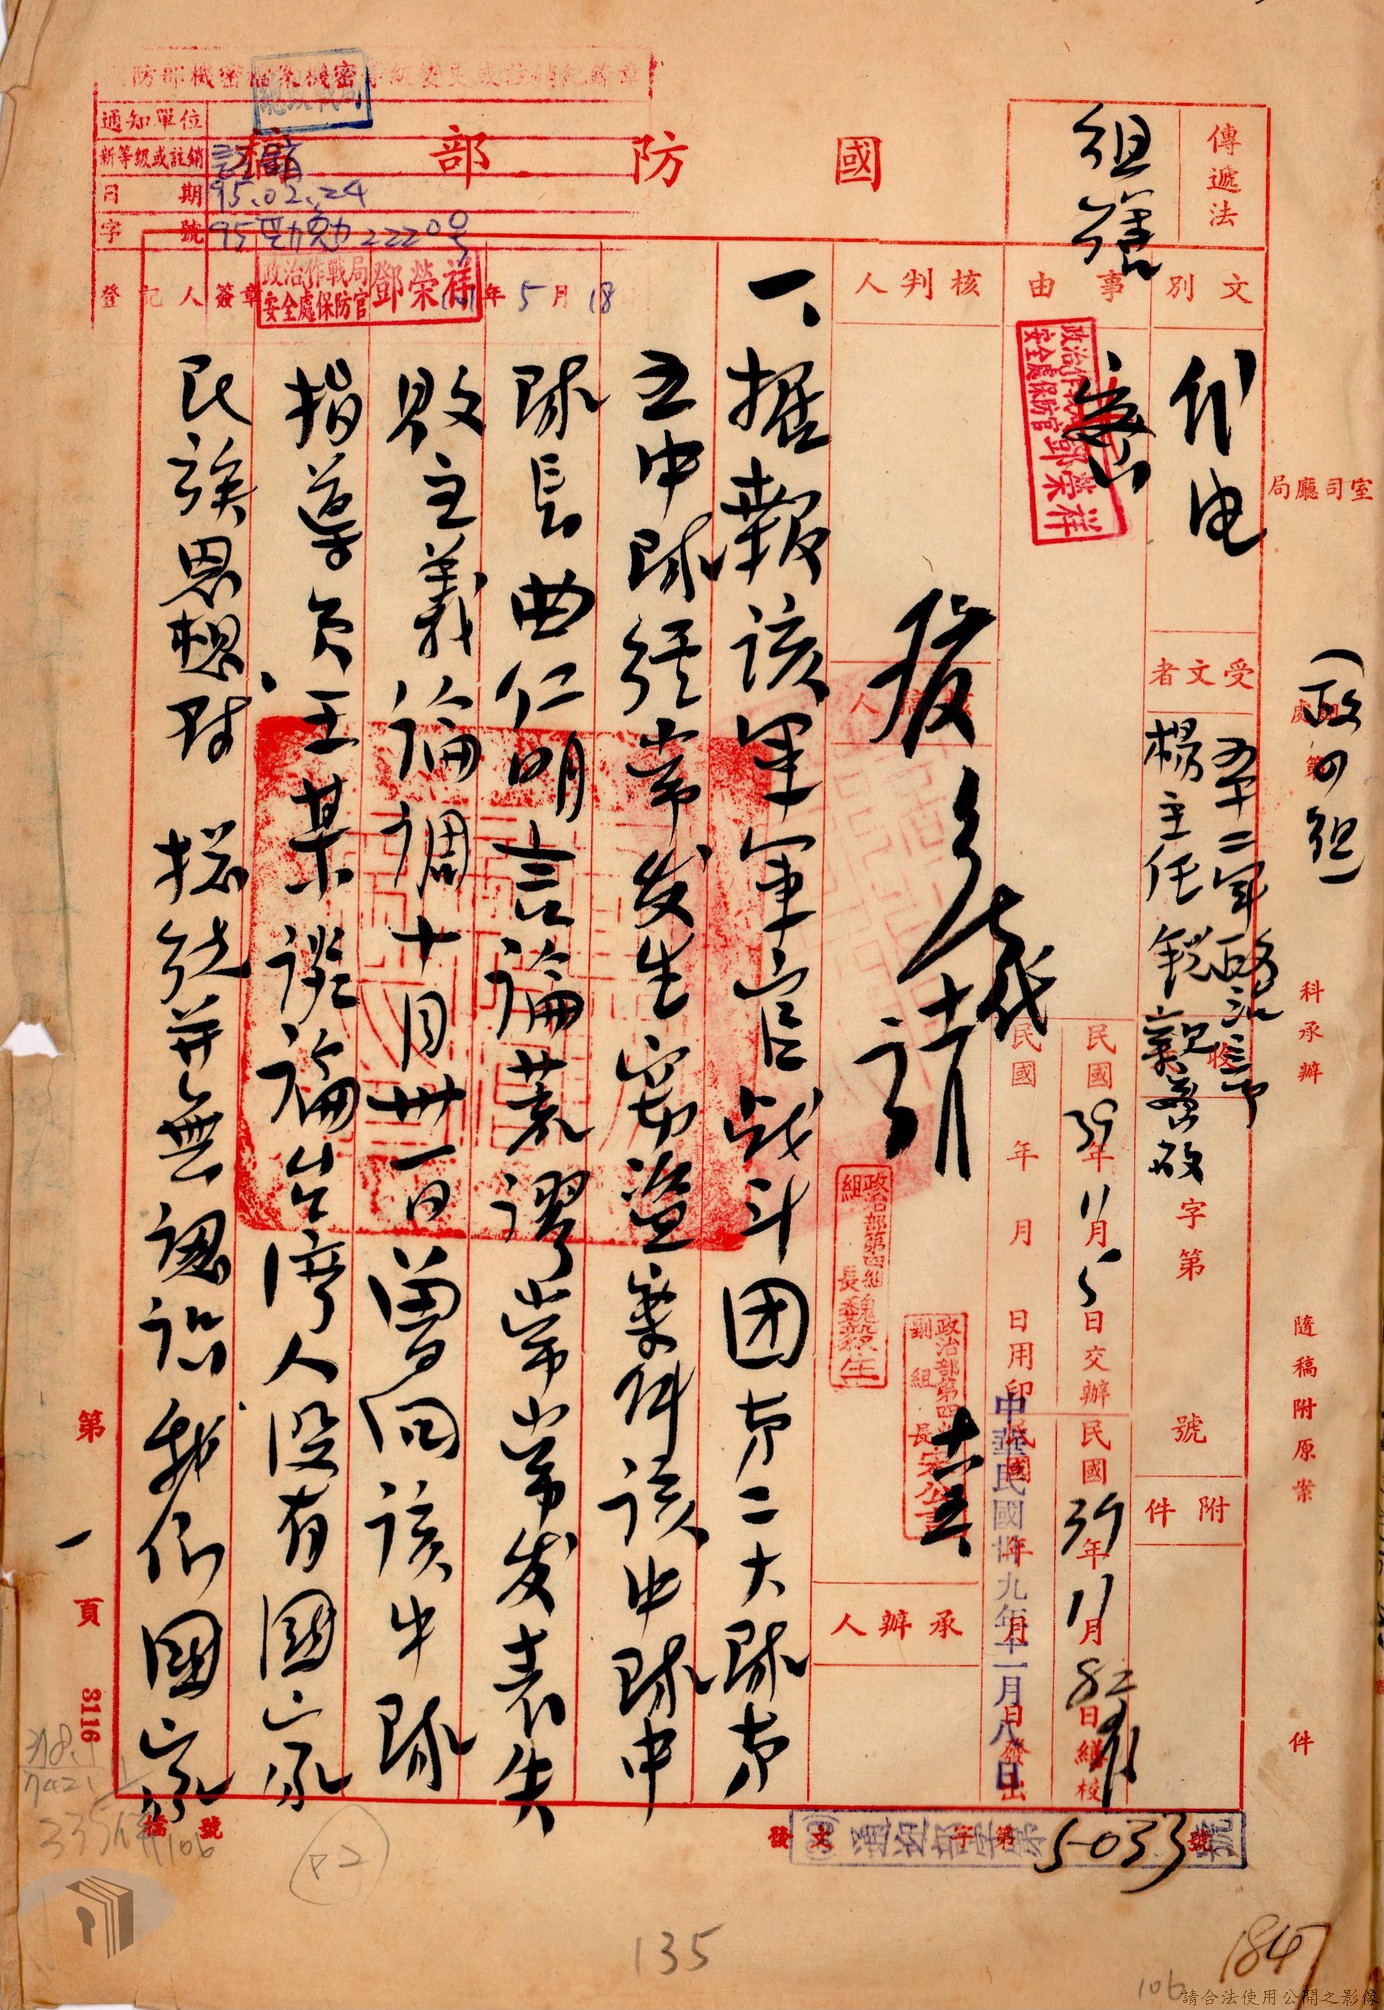 國防部稿
傳遞法
組繕
文別
代电
事由
密
受文者
五十二軍政治部
楊主任銳親啓
收
字第
號
附件
室司廳局
(政四組)
科承辦
隨稿附原案
件
核判人
民國39年11月5日交辦
民國39年11月8日繕校
民國 年 月 日用印
中華民國卅九年十一月八日
發出
承辦人
政治部第四組組長魏毅生
政治部第四組副組長宋公言
通知單位
新等級或註銷 註銷
日期 95.02.24
字號 95勁勉2220号
登記人簽章
政治作戰局安全處保防官鄧榮祥
101年5月18日
政治作戰局安全處保防官鄧榮祥
一、據報該軍軍官战斗团第二大隊第
五中隊經常发生窃盜案件该中隊中
隊長曲仁明言論荒謬常常发表失
敗主義論調十月卅一日曾向該中隊
指導员王某談論台湾人没有國家
民族思想時 
居然並無認訟我们國家
第一頁
3116
檔號
發文
字第5033號
135
106
1847
請合法使用公開之影像